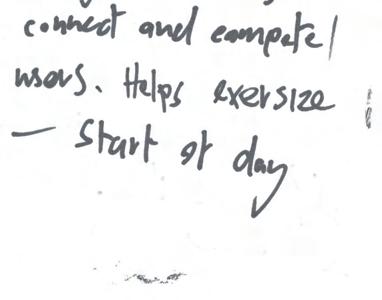 connect and compete/
users. Helps exersize
— Start of day